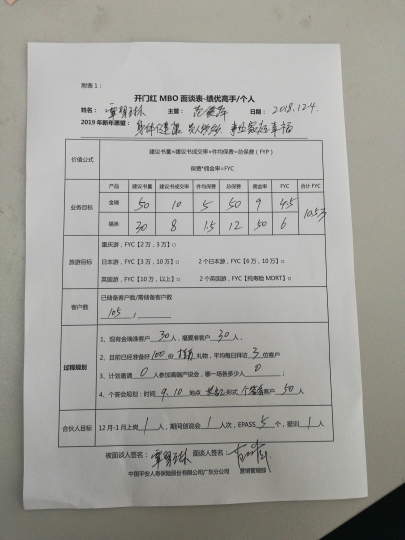 附表1：
开门红MBO面谈表-绩优高手/个人
姓名： 主管： 日期：2018.12.4.
2019年新年愿望：身体健康 家庭幸福
价值公式 建议书量×建议书成交率×件均保费=总保费（FYP）
保费*佣金率=FYC
业务目标 产品 建议书量 建议书成交率 件均保费 总保费 佣金率 FYC 合计FYC
金瑞 50 10 5 50 9 4.5 10.5万
福英 30 8 1.5 12 50 6
旅游目标 重庆游，FYC【2万，3万】□
日本游，FYC【3万，10万】□ 2个日本游，FYC【6万，10万】□
英国游，FYC【10万，以上】□ 2个英国游，FYC【纯寿险MDRT】□
客户数 已储备客户数/需储备客户数
105 ，
过程规划 1、现有金瑞准客户30人，福要准客户30人，
2、目前已经准备好100份礼物，平均每日拜访3位客户
3、计划邀请0人参加高端产说会，哪一场各多少人0；
4、个答会规划：时间9.10 地点 形式 客户50人
合伙人目标 12月-1月上岗1人，期间创说会1人次，EPASS 5个，报训1人
被面谈人签名： 面谈人签名：
中国平安人寿保险股份有限公司广东分公司 营销管理部